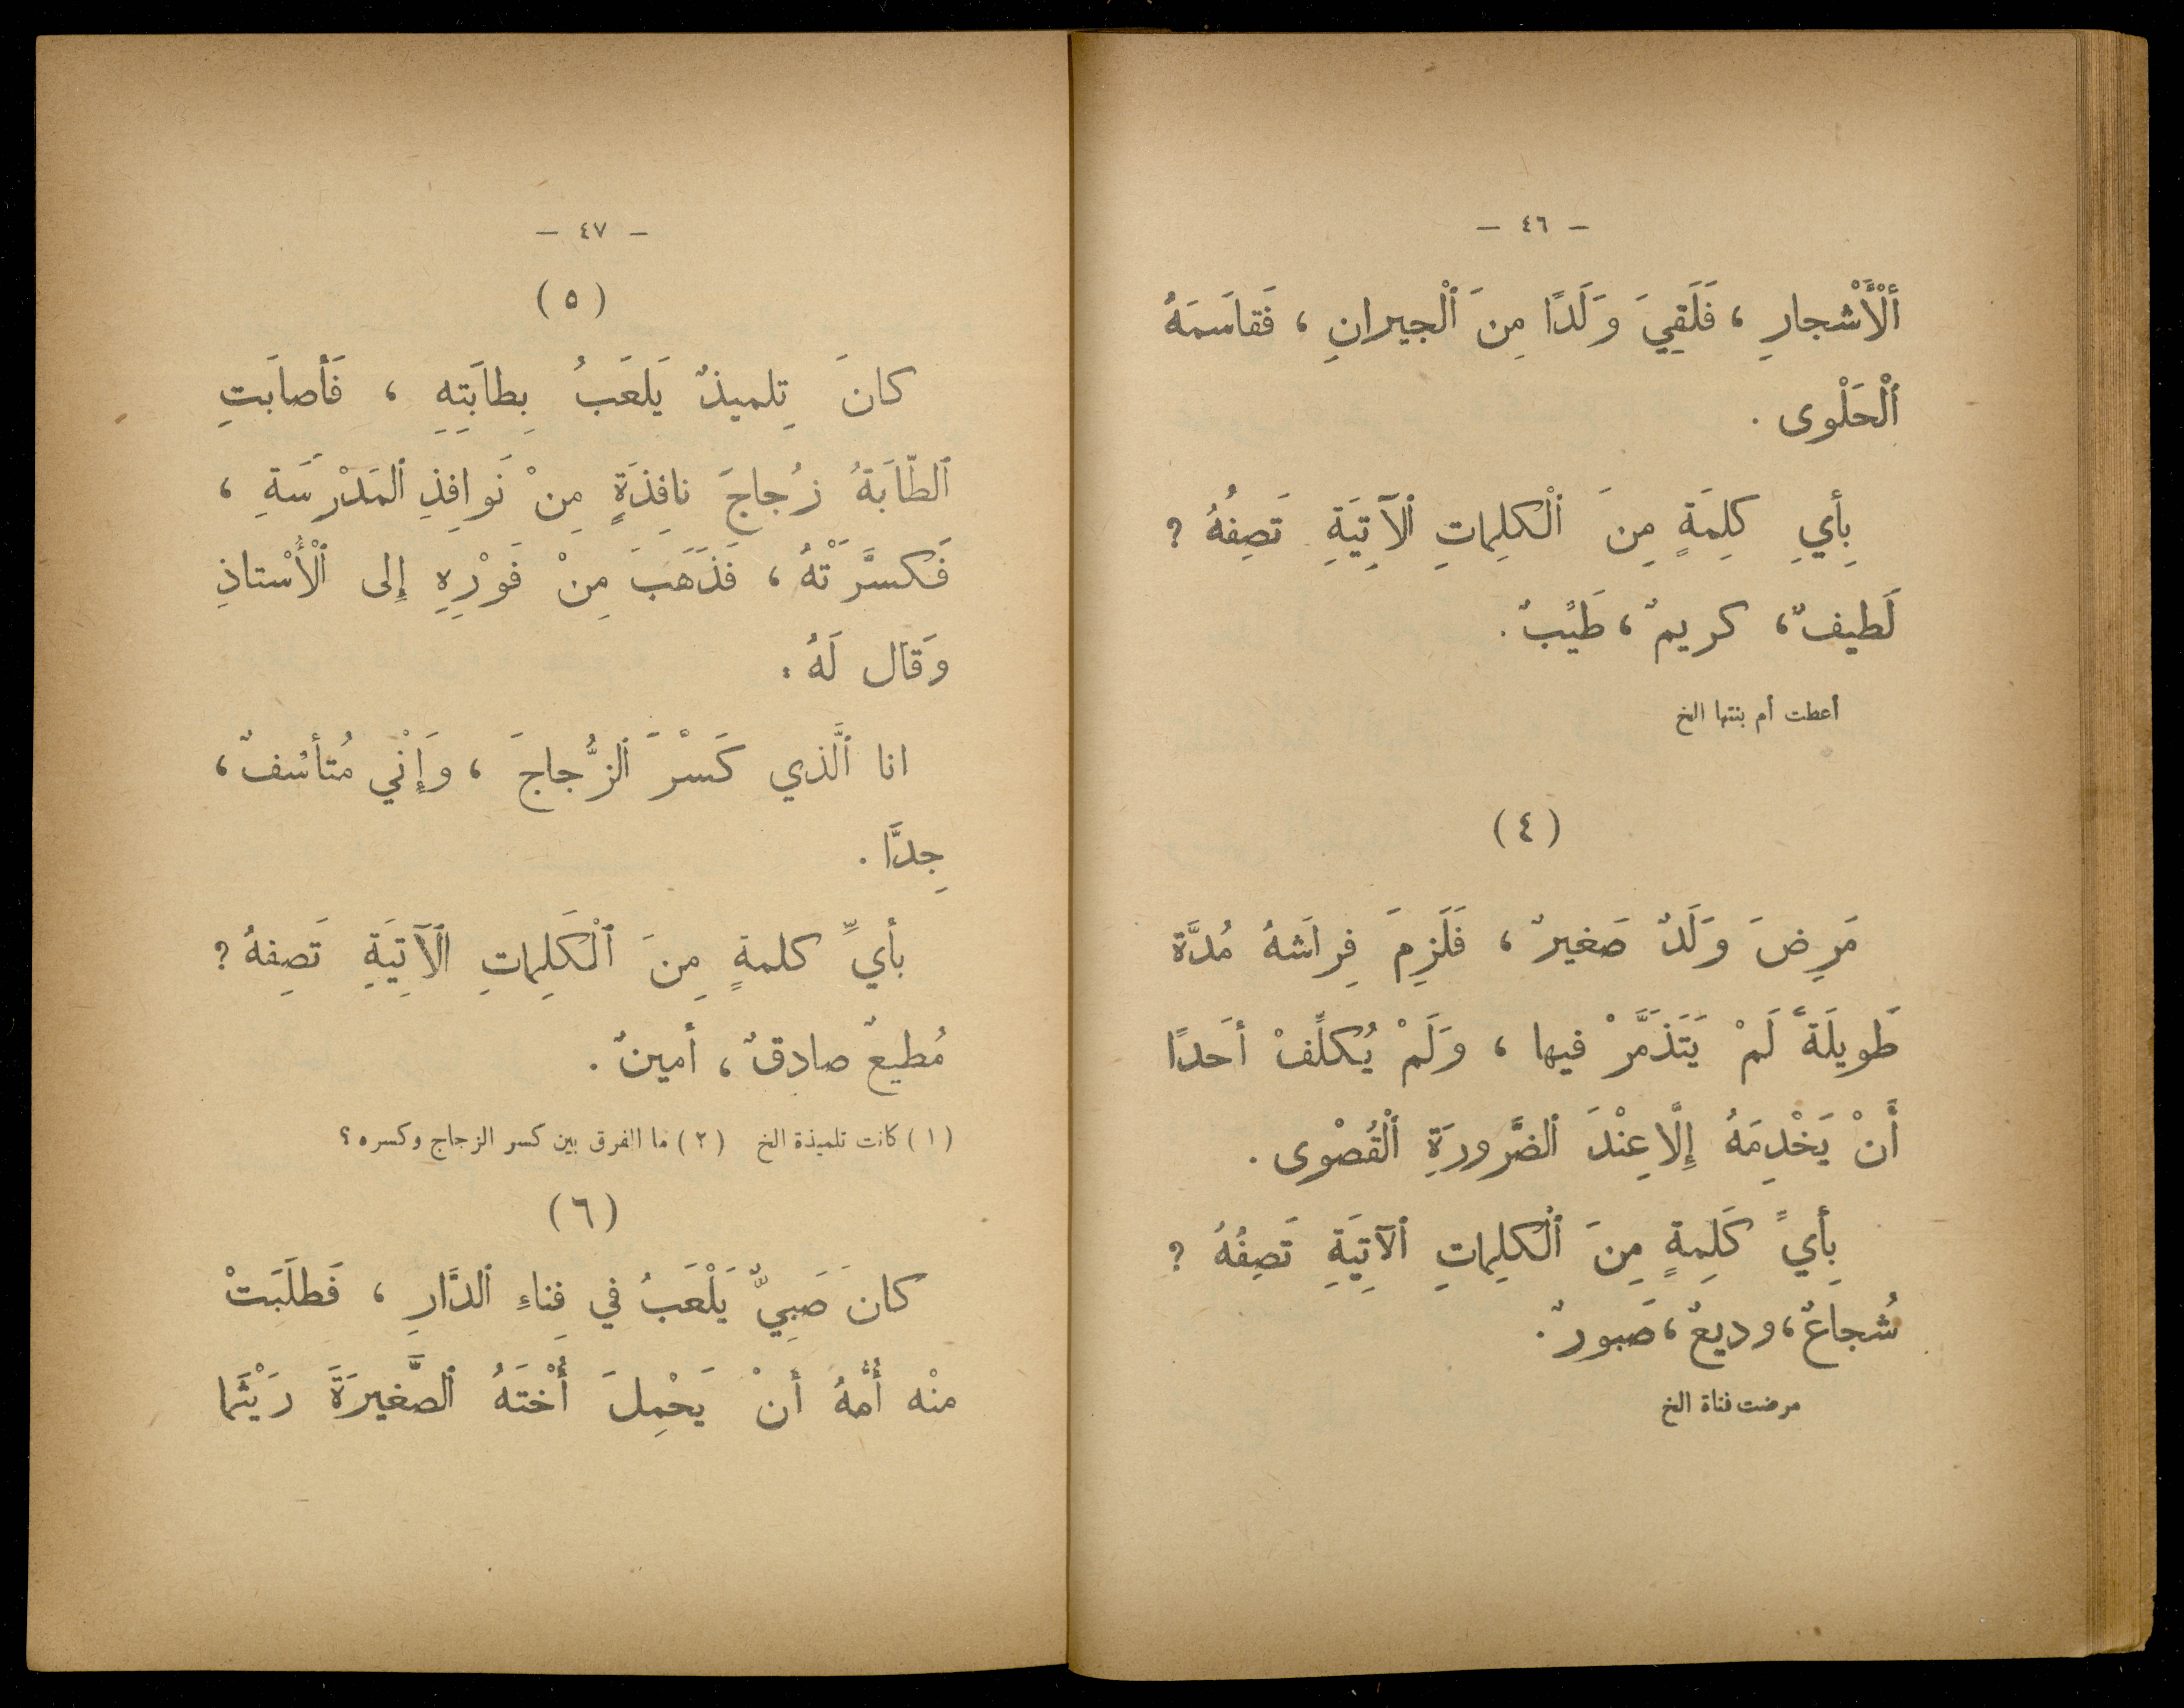 - ٤٦ -
ٱلْأَشْجارِ ، فَلَقِيَ وَلَدًا مِنَ ٱلْجيرانِ ، فَقاسَمَهُ
ٱلْحَلْوى .
بِأَيِ كَلِمَةٍ مِنَ ٱلْكلِماتِ ٱلآتِيَةِ تَصِفُهُ ?
لَطيفٌ ، كريمٌ ، طَيِّبٌ .
أعطت أم بنتها الخ
( ٤ )
مَرِضَ وَلَدٌ صَغيرٌ ، فَلَزِمَ فِراشَهُ مُدَّة
طَويلَةً لَمْ يَتَذَمَّرْ فيها ، وَلَمْ يُكلِّفْ أحَدًا
أَنْ يَخْدِمَهُ إِلَّا عِنْدَ ٱلضَّرورَةِ ٱلْقُصْوى .
بِأيِّ كَلِمةٍ مِنَ ٱلْكلِماتِ ٱلآتِيَةِ تَصِفُهُ ?
شُجاعٌ ، وديعٌ ، صَبورٌ .
مرضت فتاة الخ
- ٤٧ -
( ٥ )
كانَ تِلميذٌ يَلعَبُ بِطابَتِهِ ، فَأَصابَتِ
ٱلطّابَةُ زُجاجَ نافِذَةٍ مِنْ نَوافِذِ ٱلمَدْرَسَةِ ،
فَكسَّرَتْهُ ، فَذَهَبَ مِنْ فَوْرِهِ إِلى ٱلْأُسْتاذِ
وَقَال لَهُ :
انا ٱلَّذي كَسْرَ ٱلزُّجاجَ ، وَإِنِّي مُتأسِّفٌ ،
جِدًّا .
بأيِّ كلمةٍ مِنَ ٱلْكَلِماتِ ٱلْآتِيَةِ تَصِفهُ ?
مُطيعٌ صادِقٌ ، أمينٌ .
( ١ ) كانت تلميذة الخ ( ٢ ) ما الفرق بين كسر الزجاج وكسره ؟
( ٦ )
كانَ صَبِيٌّ يَلْعَبُ في فِناءِ ٱلدَّارِ ، فَطلَبَتْ
منْه أُمُّهُ أَنْ يَحْمِلَ أُخْتَهُ ٱلصَّغيرَةَ رَيْثَما